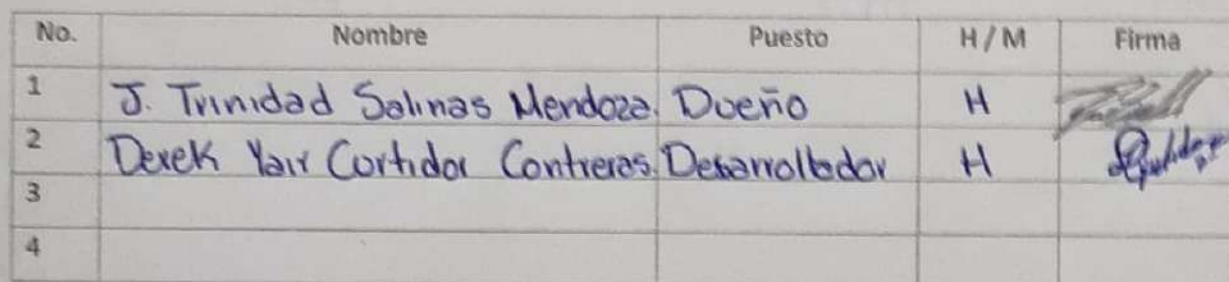 No. Nombre Puesto H/M Firma
1 J. Trinidad Salinas Mendoza. Dueño H
2 Derek Yair Cortidor Contreras. Desarrollador H
3
4